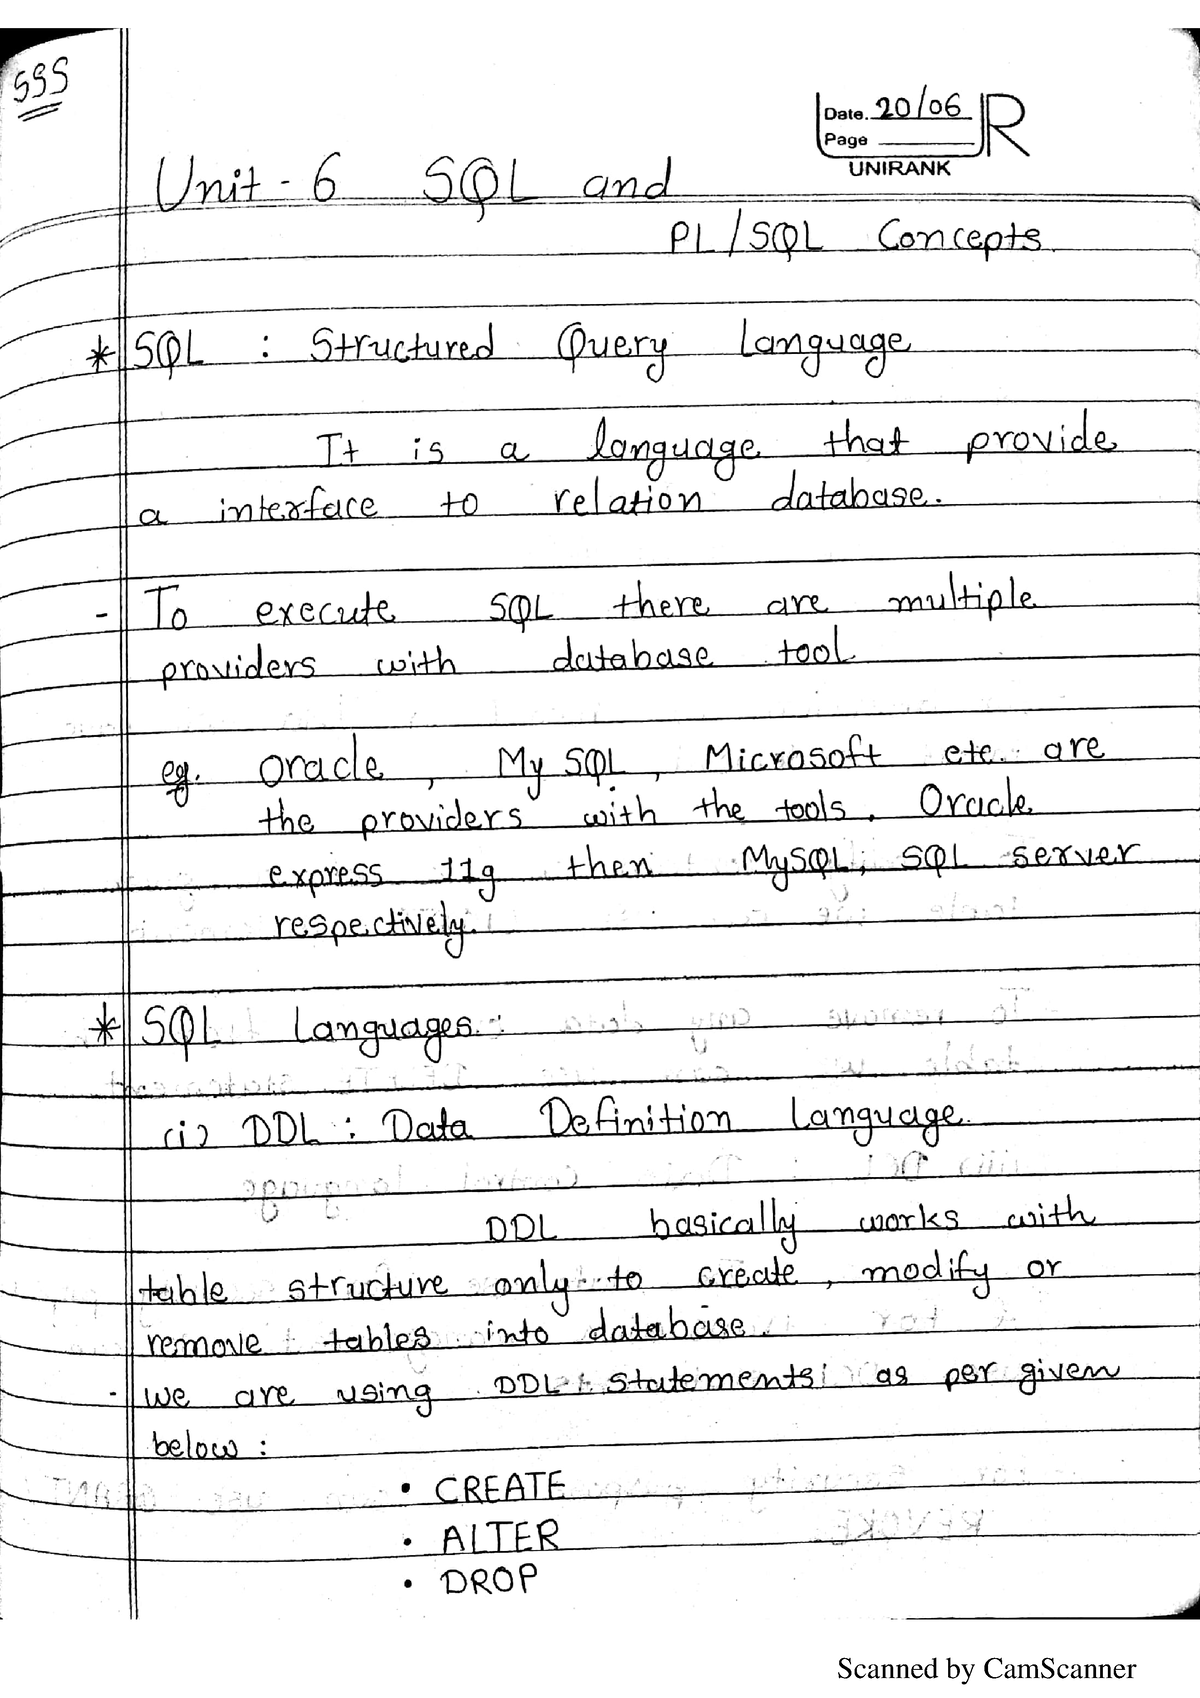 SSS
Date. 20/06
Page
UNIRANK
R
Unit - 6 SQL and
PL/SQL Concepts
* SQL : Structured Query Language
It is a language that provide
a interface to relation database.
- To execute SQL there are multiple
providers with database tool
eg. Oracle, My SQL, Microsoft etc. are
the providers with the tools. Oracle
express 11g then MySQL, SQL server
respectively.
* SQL Languages:
(i) DDL : Data Definition Language.
DDL basically works with
table structure only to create, modify or
remove tables into database.
- we are using DDL statements as per given
below :
• CREATE
• ALTER
• DROP
Scanned by CamScanner